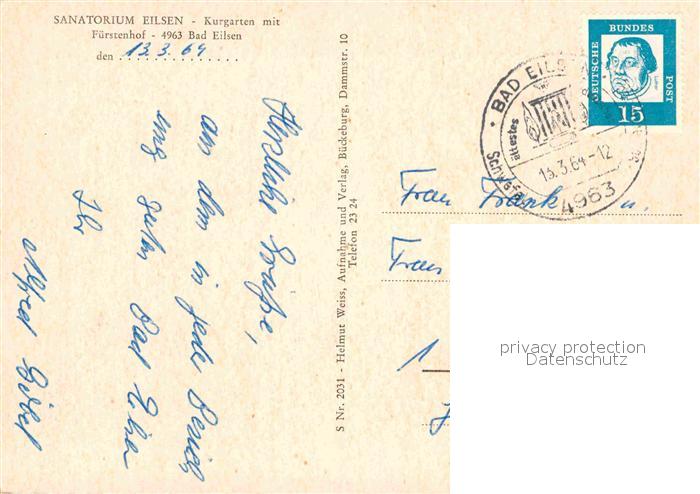 SANATORIUM EILSEN - Kurgarten mit
Fürstenhof - 4963 Bad Eilsen
den 13.3.64
Herzliche Grüße,
aus dem in jeder
guten Bad Eilsen
Ihr
Alfred
S Nr. 2031 - Helmut Weiss, Aufnahme und Verlag, Bückeburg, Dammstr. 10
Telefon 23 24
DEUTSCHE BUNDES POST
15
BAD EILS
ältestes
13.3.64-12
4963
Frau Frank u.
Frau
1
privacy protection
Datenschutz